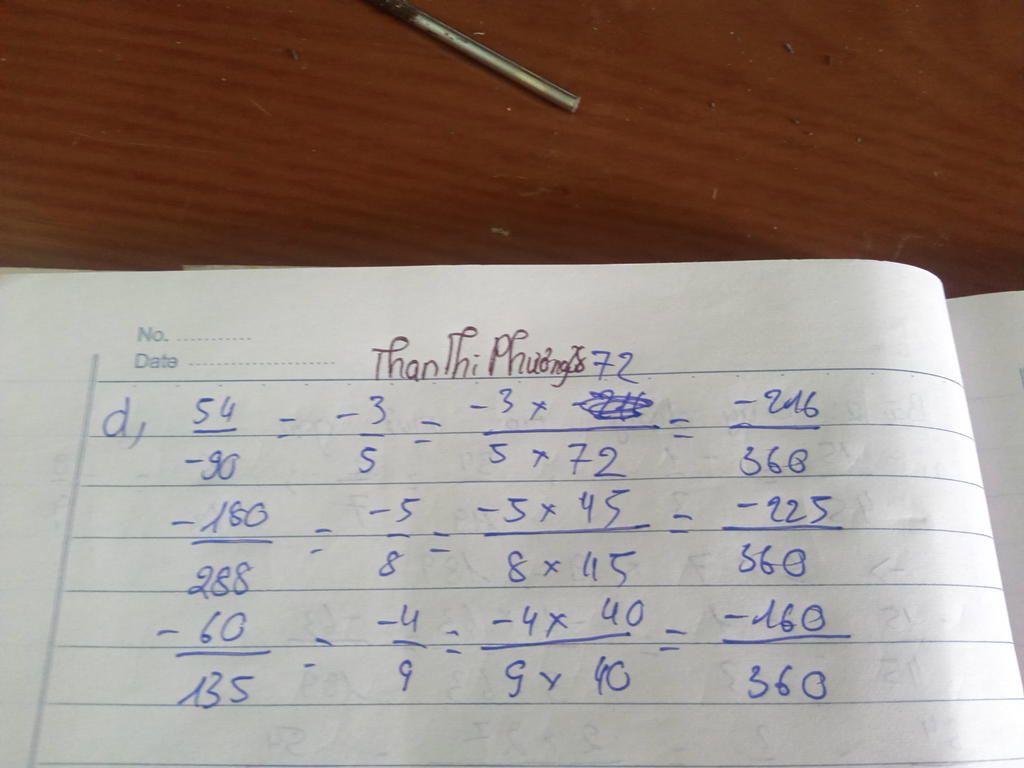 No. ............
Date ........................
Than Thi Phương 72
d, 54/-90 = -3/5 = -3 × /5 × 72 = -216/360
-180/288 = -5/8 = -5 × 45/8 × 45 = -225/360
-60/135 = -4/9 = -4 × 40/9 × 40 = -160/360